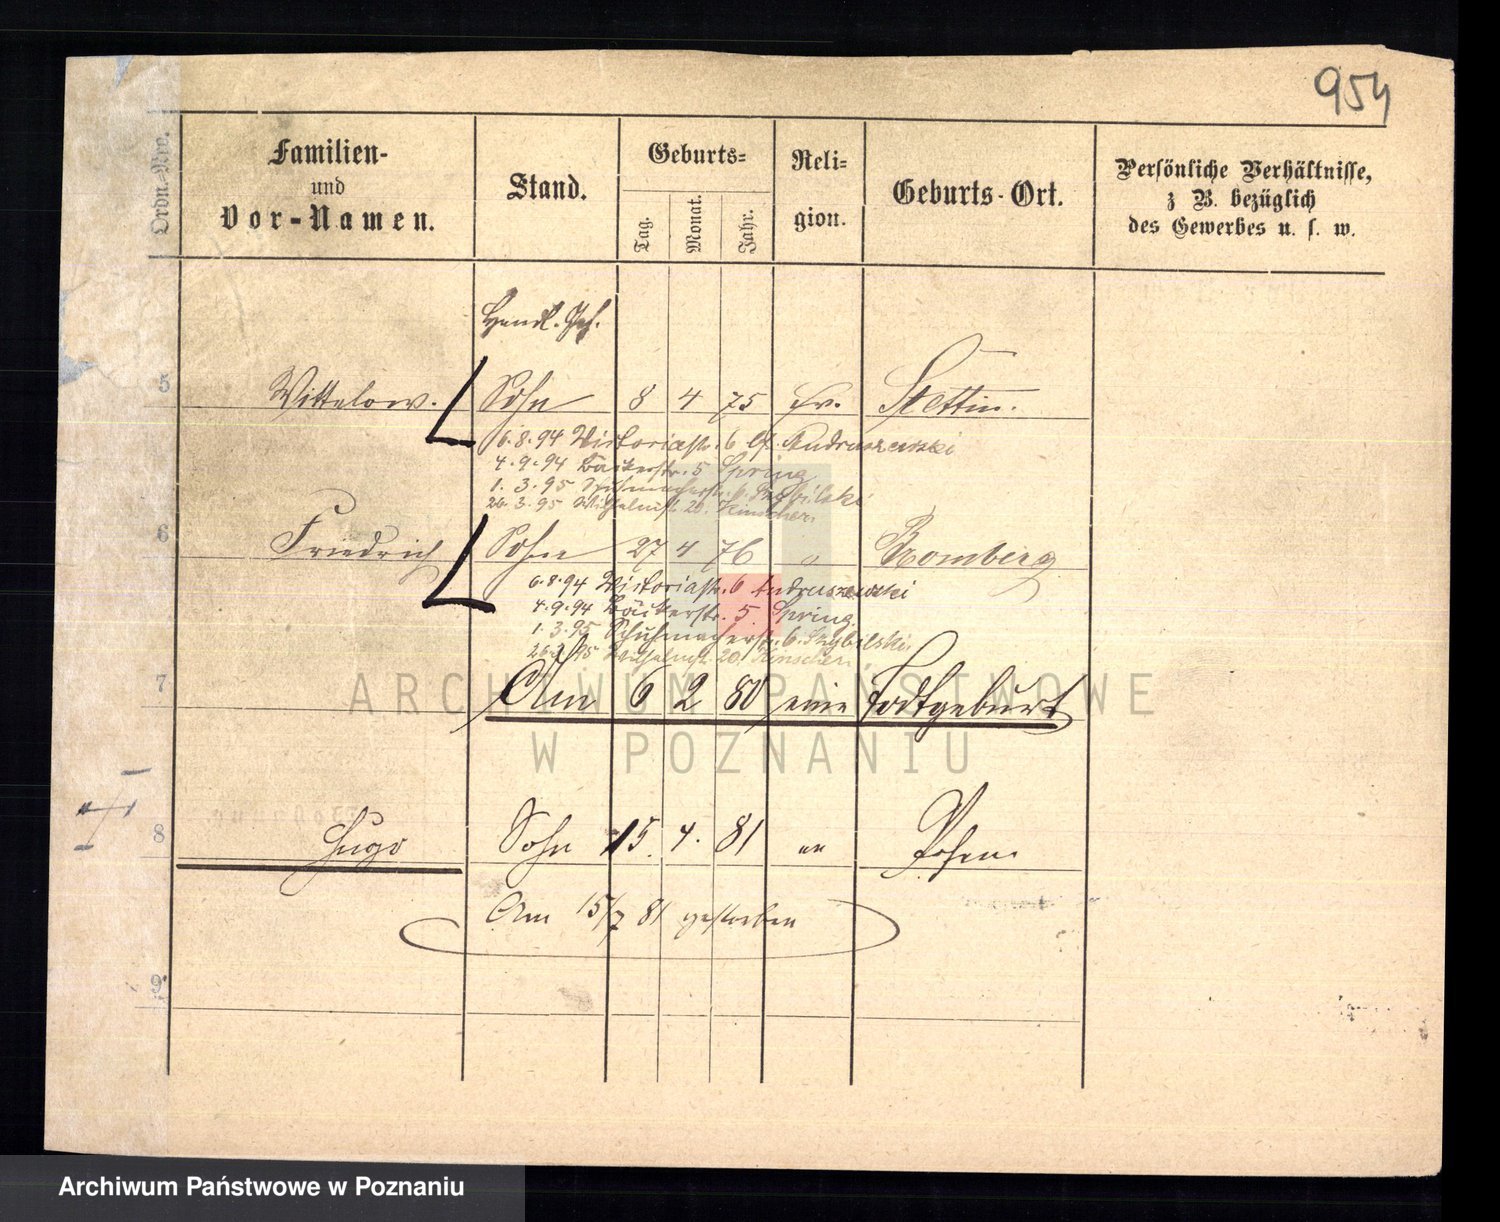 954
Ordn.-Nro.
Familien-
und
Vor-Namen.
Stand.
Geburts-
Tag.
Monat.
Jahr.
Reli-
gion.
Geburts-Ort.
Persönliche Verhältnisse,
z B. bezüglich
des Gewerbes u. s. w.
Handl. Geh.
5 Sohn 8 4 75 Ev. Stettin.
6.8.94 Victoriastr. 6 Andruszewski
4.9.94 Bäckerstr. 5 Spring
1.3.95 Schuhmacherstr. 6. Przybilski
26.3.95 Wilhelmstr. 20.
6 Friedrich Sohn 27 4 76 " Bomberg
6.8.94 Victoriastr. 6 Andruszewski
4.9.94 Bäckerstr. 5. Spring
1.3.95 Schuhmacherstr. 6. Przybilski
26.3.95 Wilhelmstr. 20.
7 Am 6 2 80 eine Todtgeburt
ARCHIWUM PAŃSTWOWE
W POZNANIU
8 Hugo Sohn 15. 4. 81 Posen
Am 15/7 81 gestorben
9
Archiwum Państwowe w Poznaniu